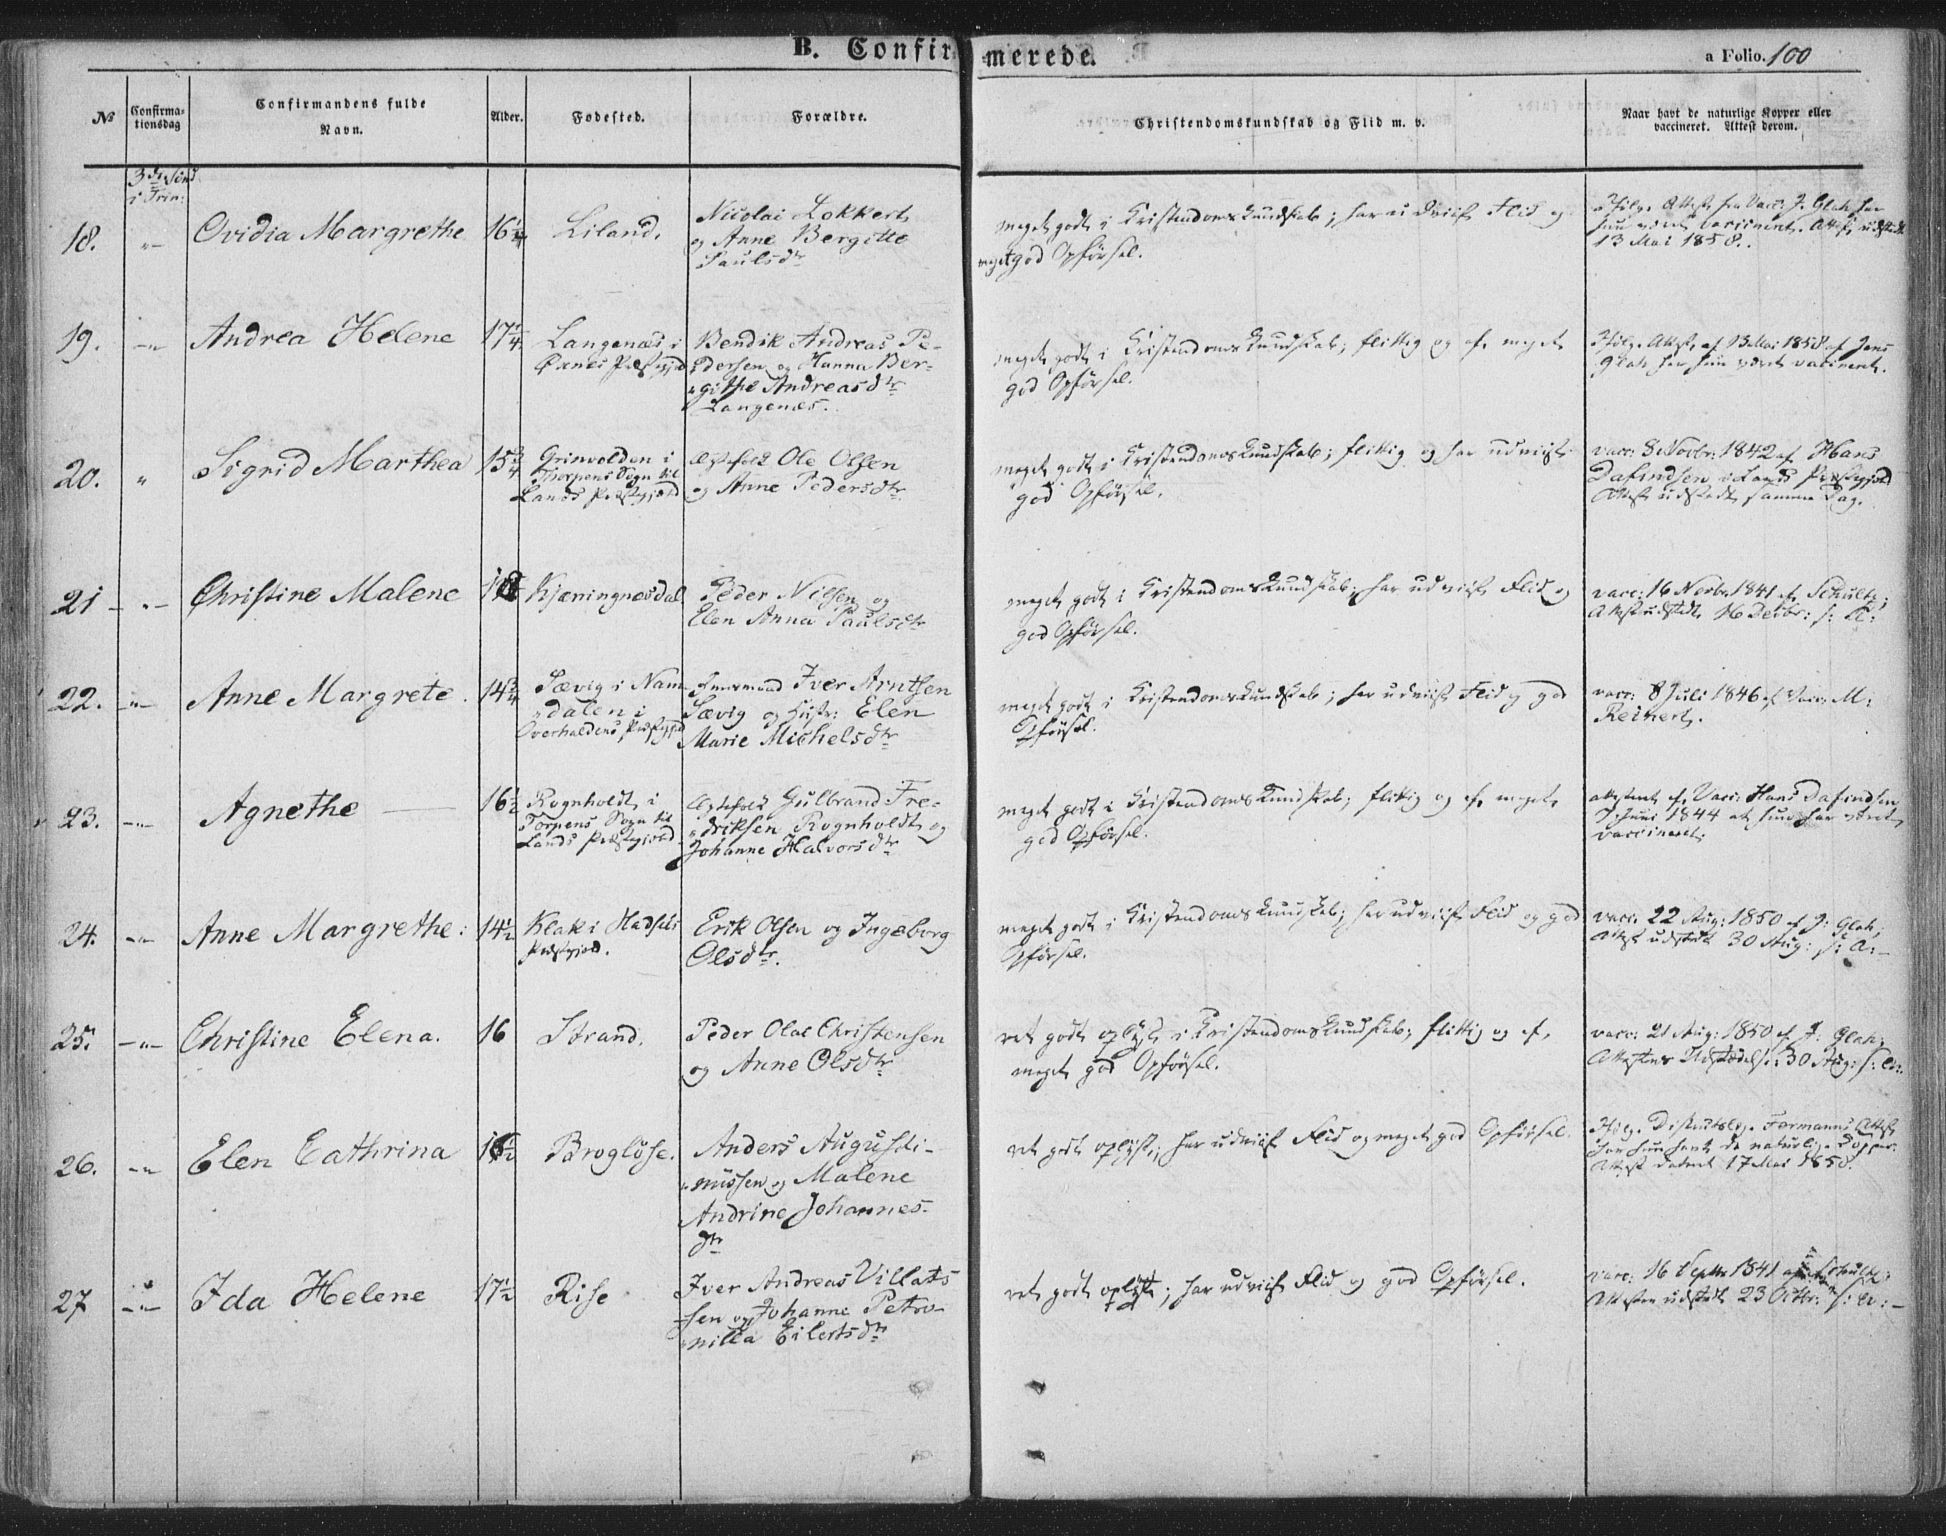 B. Confirmerede.
a Folio. 100
№
Confirma-
tionsdag
Confirmandens fulde
Navn.
Alder.
Fødested.
Forældre.
Christendomskundskab og Flid m. v.
Naar havt de naturlige Kopper eller
vaccineret. Attest derom.
3die Sønd
i Trin:
18. -"- Ovidia Margrethe 16 1/4 Liland.
Nicolai Lokkert
og Anne Bergitte
Paulsdtr
meget godt i Kristendomskundskab; har udviist Flid og
meget god Opførsel.
Ifølge Attest fra Vacc: J. Glah har
hun været vaccineret. Attest udstedt
13 Mai 1858.
19. -"- Andrea Helene 17 1/4
Langenæs i
Øxnes Præstegjeld
Bendik Andreas Pe-
dersen og Hanna Ber-
githe Andreasdtr
Langenæs.
meget godt i Kristendomskundskab; flittig og af meget
god Opførsel.
Ifølge Attest af 13 Mai 1858 af Jens
Glah har hun været vaccineret.
20. " Sigrid Marthea 15 3/4
Grinvolden i
Thorpens Sogn til
Lands Præstegjeld
Ægtefolk Ole Olsen
og Anne Pedersdtr.
meget godt i Kristendomskundskab; flittig og har udviist
god Opførsel.
vacc: 8 Novbr: 1842 af Hans
Dafindsen i Lands Præstegjeld
Attest udstedt samme Dag.
21 -"- Christine Malene
Kjæningnesdal
Peder Nilsen og
Elen Anna Paulsdtr
meget godt i Kristendomskundskab; har udviist Flid og
god Opførsel.
vacc: 16 Novbr 1841 af Schultz;
Attest udstedt 16 Decbr: s: A:
22. -"- Anne Margrete. 14 3/4
Sævig i Nam-
dalen i
Overhaldens Præstegjeld
Huusmand Iver Arntsen
Sævig og Hustr: Elen
Marie Michelsdtr
meget godt i Kristendomskundskab; har udviist Flid og god
Opførsel.
vacc: 8 Juli 1846 af Vacc: M:
Reinert.
23. -"- Agnethe 16 1/2
Rognholdt i
Torpens Sogn til
Lands Præstegjeld
Ægtefolk Gulbrand Fre-
driksen Rognholdt og
Johanne Halvorsdtr
meget godt i Kristendomskundskab; flittig og af meget
god Opførsel.
attesteret af Vacc: Hans Dafindsen
Juni 1844 at hun har været
vaccineret.
24. -"- Anne Margrethe: 14 1/2
Klak i Hadsels
Præstegjeld.
Erik Olsen og Ingeborg
Olsdtr.
meget godt i Kristendomskundskab; har udviist Flid og god
Opførsel.
vacc: 22 Aug: 1850 af J: Glah;
Attest udstedt 30 Aug: s: A:-
25. -"- Christine Elena. 16 Strand.
Peder Olai Christensen
og Anne Olsdtr
ret godt oplyst i Kristendomskundskab; flittig og af
meget god Opførsel.
vacc: 21 Aug: 1850 af J: Glah;
Attestens Udstædelse: 30 Aug: s: A:
26. -"- Elen Cathrina Brogløse.
Anders Augusti-
nussen og Malene
Andrine Johannes-
dtr
ret godt oplyst; har udviist Flid og meget god Opførsel.
Ifølge Distriktslæge Formanns Attest
har hun havt de naturlige Kopper.
Attest dateret 17 Mai 1858.
27 -"- Ida Helene 17 1/2 Rise
Iver Andreas Villads-
sen og Johanne Petro-
nilla Eilertsdtr
ret godt oplyst; har udviist Flid og god Opførsel.
vacc: 16 Septbr 1841 af Schultz;
Attesten udstedt 23 Octbr: s: A:-